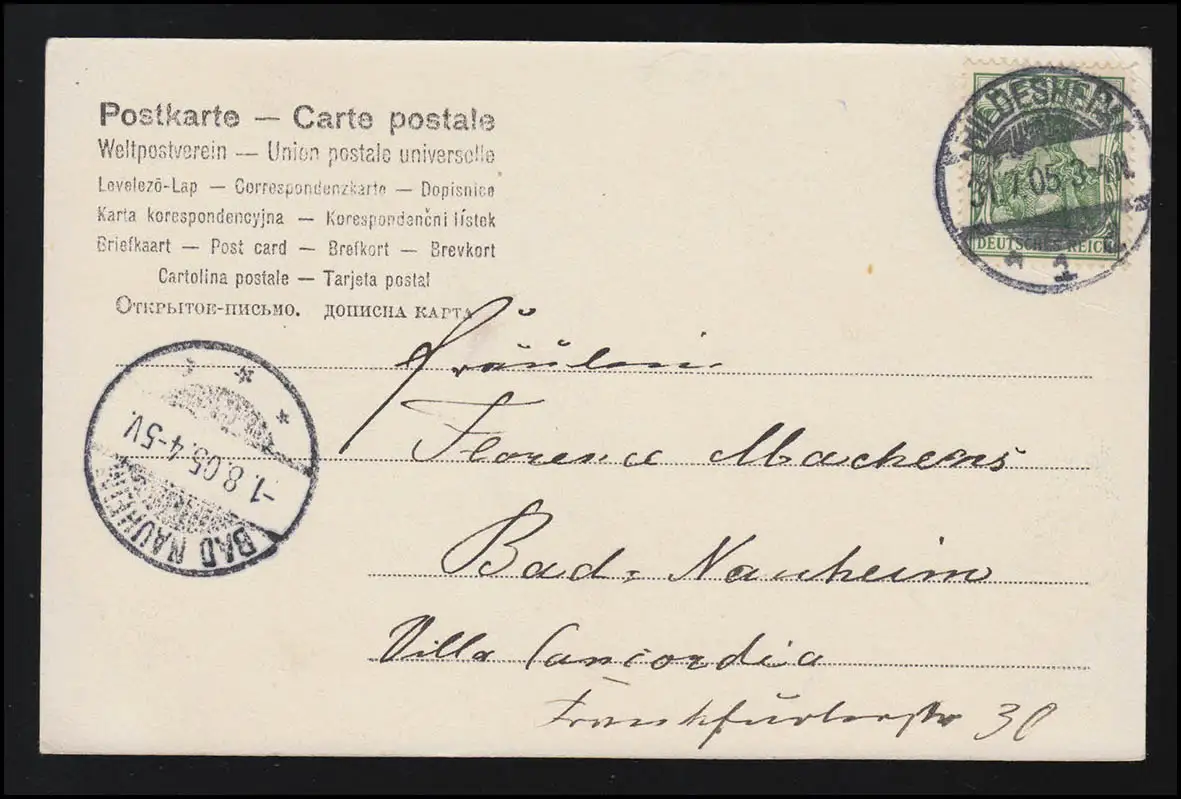 Postkarte — Carte postale
Weltpostverein — Union postale universelle
Levelező-Lap — Correspondenzkarte — Dopisnice
Karta korespondencyjna — Korespondenční lístek
Briefkaart — Post card — Brefkort — Brevkort
Cartolina postale — Tarjeta postal
Открытое-письмо. дописна карта
HILDESHEIM
31.7.05.3-4N.
* 1 c
DEUTSCHES REICH
Fräulein
Florence Machens
Bad-Nauheim
Villa Concordia
Frankfurterstr 30
BAD NAUHEIM
-1.8.05.4-5V.